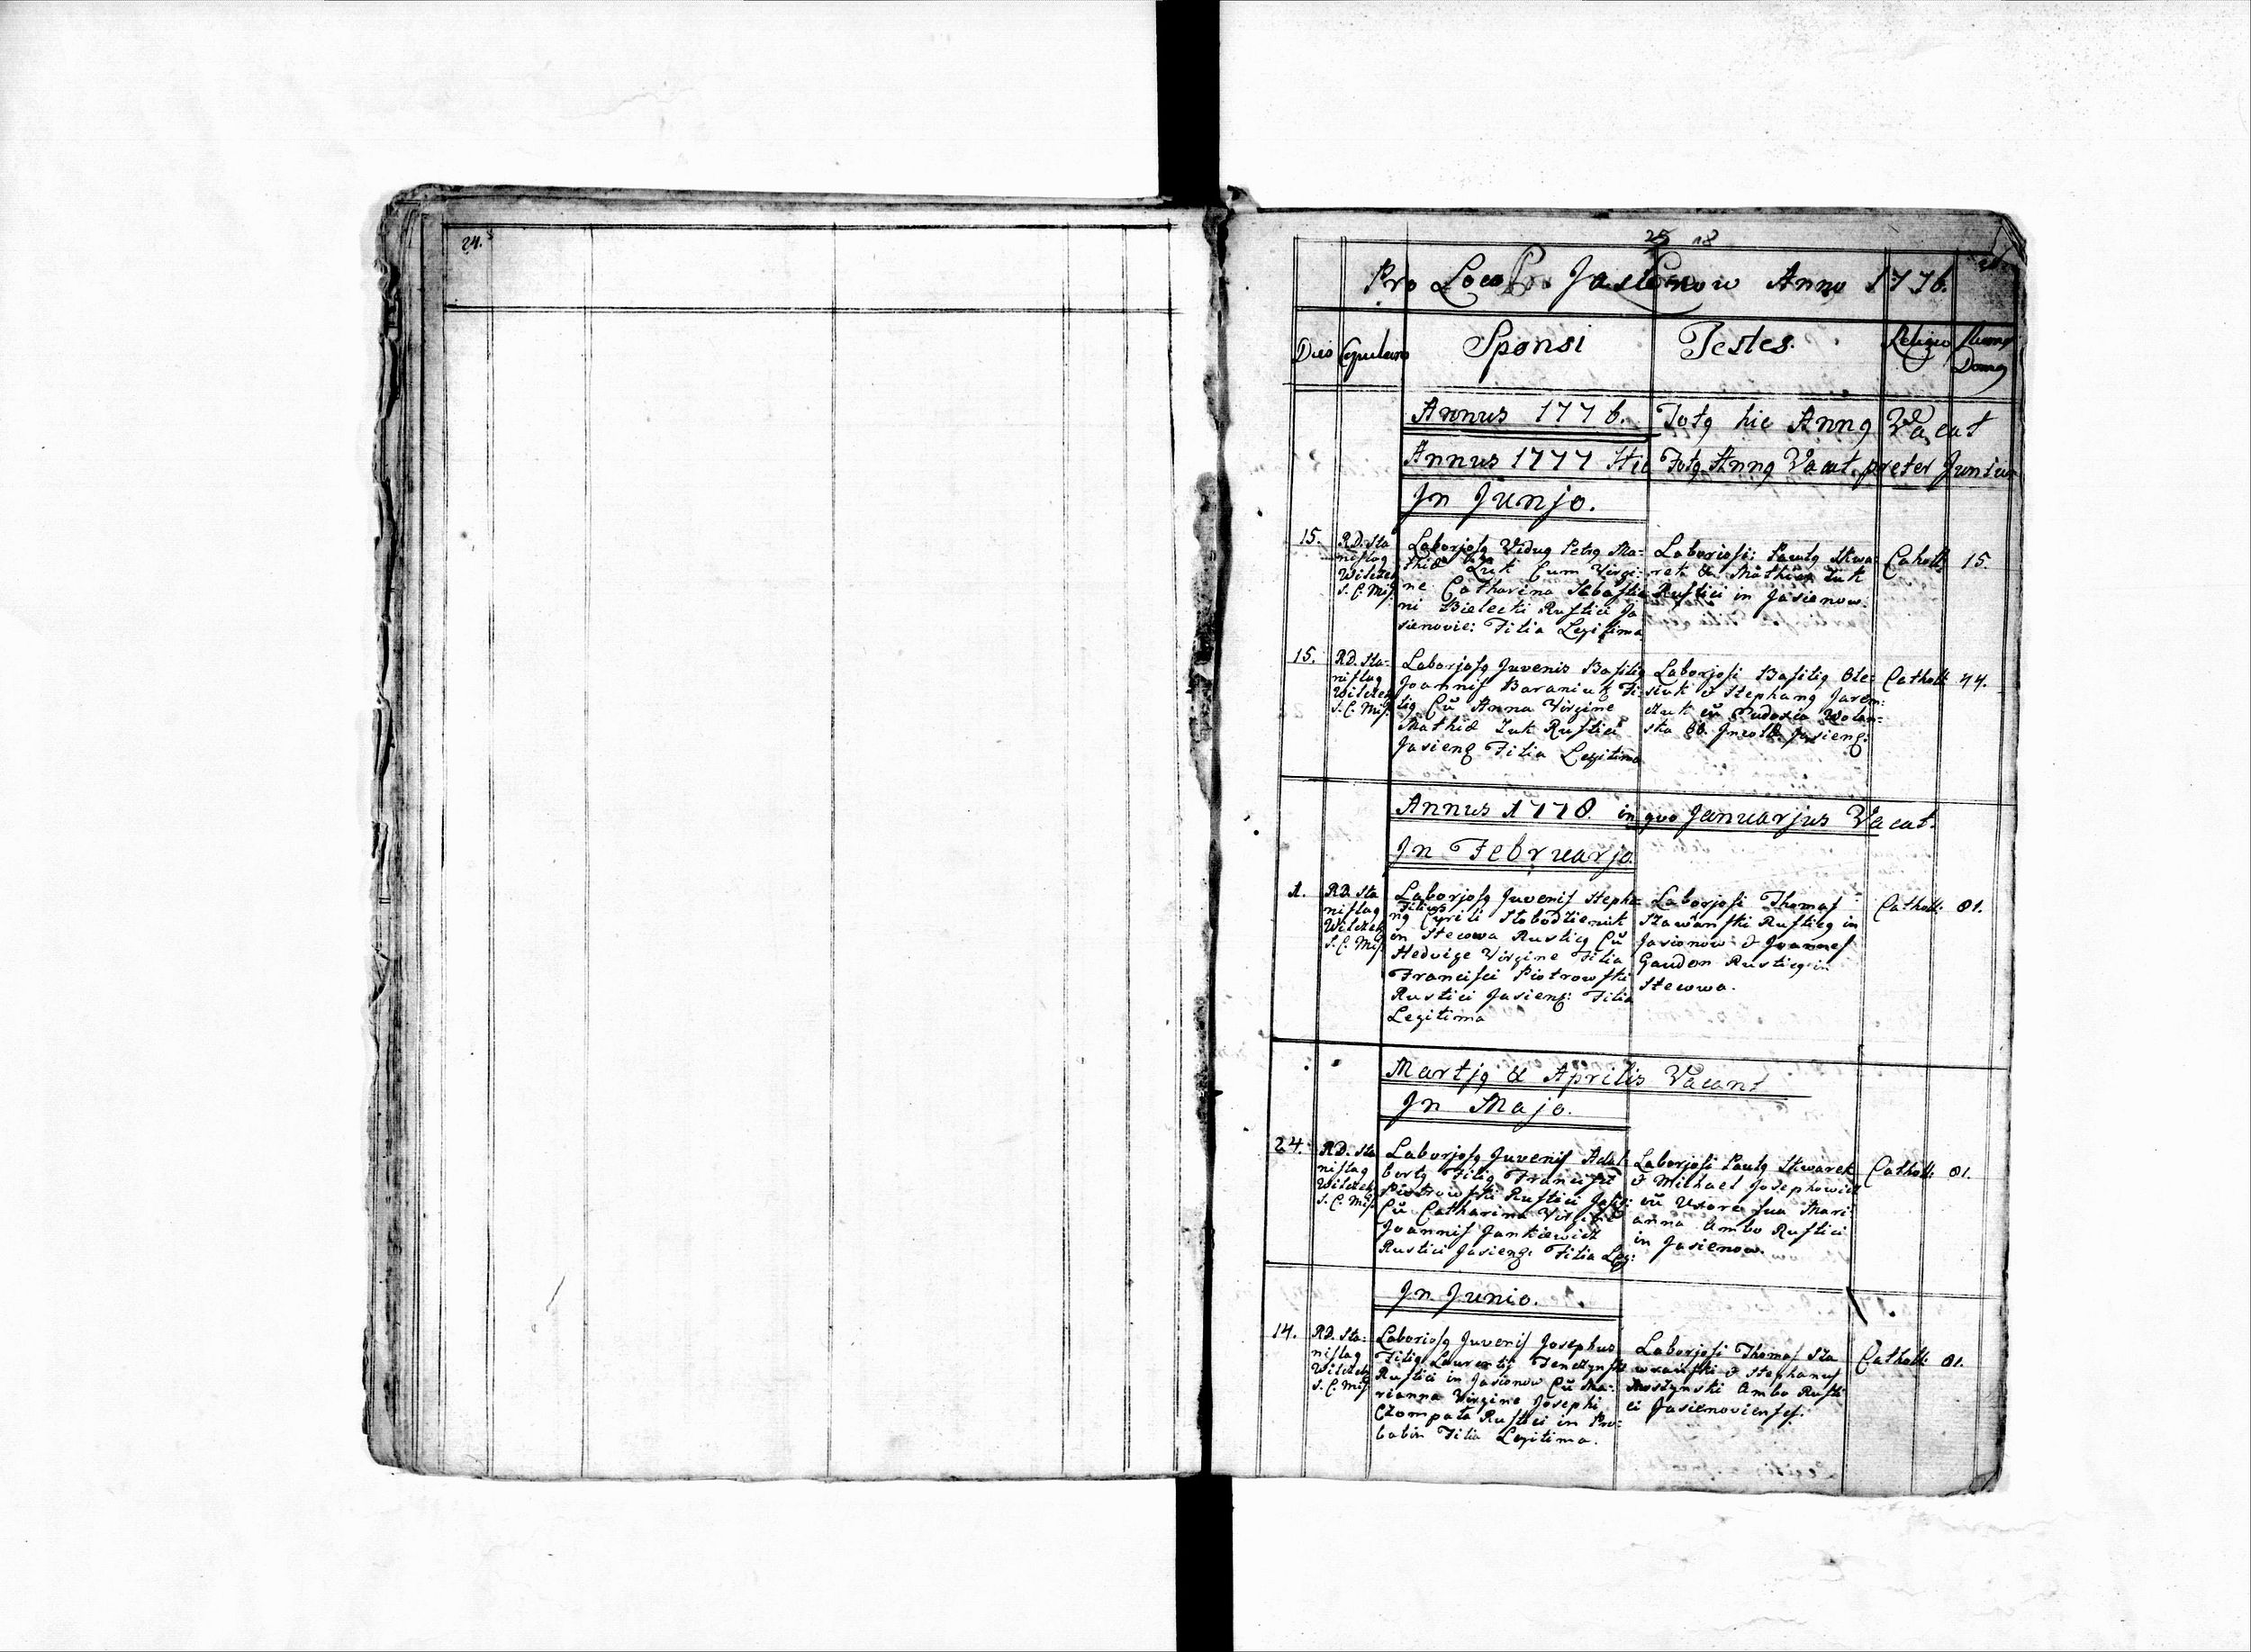 24.
25 18
Pro Loco Jasienow Anno 1776.
Dies Copulans Sponsi Testes. Religio Numq Domq
Annus 1776. Totq hic Annq Vacat
Annus 1777 Hic Totq Annq Vacat preter Junium
In Junjo.
15.
RD. Sta
nislaq
Wilczek
S. C. Mis.
Laborjosq Viduq Petrq Ma-
thiæ Zuk Cum Virgi-
ne Catharina Sebastia
ni Bielecki Rustici Ja
sienovie: Filia Legitima
Laboriosi: Paulq Skwa-
rek & Mathias Zuk
Rustici in Jasienow.
Cathol: 15.
15.
RD. Sta-
nislaq
Wilczek
S. C. Mis.
Laborjosq Juvenis Basiliq
Joannis Baraniuk Fi-
liq Cũ Anna Virgine
Mathiæ Zuk Rustici
Jasienq Filia Legitima
Laborjosi Basiliq Ole-
siuk & Stephanq Jarem-
czuk cũ Eudosia Wolan-
ska Jasienq:
Cathol: 44.
Annus 1778 in quo Januarjus Vacat.
In Februarjo.
1.
RD. Sta
nislaq
Wilczek
S. C. Mis.
Laborjosq Juvenis Stepha
Filius
nq Cyrili Slobodzienik
in Stecowa Rusticq Cũ
Hedvige Virgine Filia
Francisci Piotrowski
Rustici Jasienq: Filia
Legitima
Laborjosi Thomas
Szawanski Rusticq in
Jasionow & Joannes
Gaudon Rusticq in
Stecowa.
Cathol: 81.
Martjq & Aprilis Vacant
In Majo.
24.
RD. Sta
nislaq
Wilczek
S. C. Mis.
Laborjosq Juvenis Adal-
bertq Filiq Francisci
Piotrowski Rustici Jasi:
Cũ Catharina Virgine
Joannis Jankiewicz
Rustici Jasienq: Filia Leg:
Laborjosi Paulq Skwarek
& Michael Josephowicz
cũ Uxore sua Mari-
anna Ambo Rustici
in Jasienow.
Cathol: 81.
In Junio.
14.
RD. Sta-
nislaq
Wilczek
S. C. Mis.
Laboriosq Juvenis Josephus
Filiq Laurentij Tenczynski
Rustici in Jasionow Cũ Ma-
rianna Virgine Josephi
Czompala Rustici in Pro-
babin Filia Legitima.
Laborjosi Thomas Sza
wranski & Stephanus
Moszynski Ambo Rusti
ci Jasienovienses.
Cathol: 81.